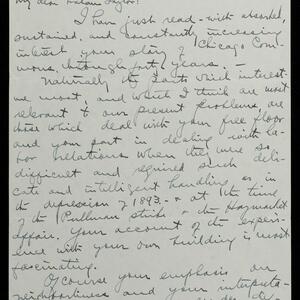 My dear Graham Taylor:
I have just read - with absorbed,
sustained, and constantly increasing
interest your story of "Chicago Com-
mons, through forty years. -
Naturally the parts which interest-
ed me most, and which I think are most
relevant to our present problems, are
those which deal with your free floor
and your part in dealing with la-
bor relations when they were so
difficult and required such deli-
cate and intelligent handling as in
the depression of 1893 - & at the time
of the Pullman Strike & the Haymarket
Your account of the experi-
ence with your own building is most
fascinating.
Of course your emphasis on
neighborliness and your interpreta-